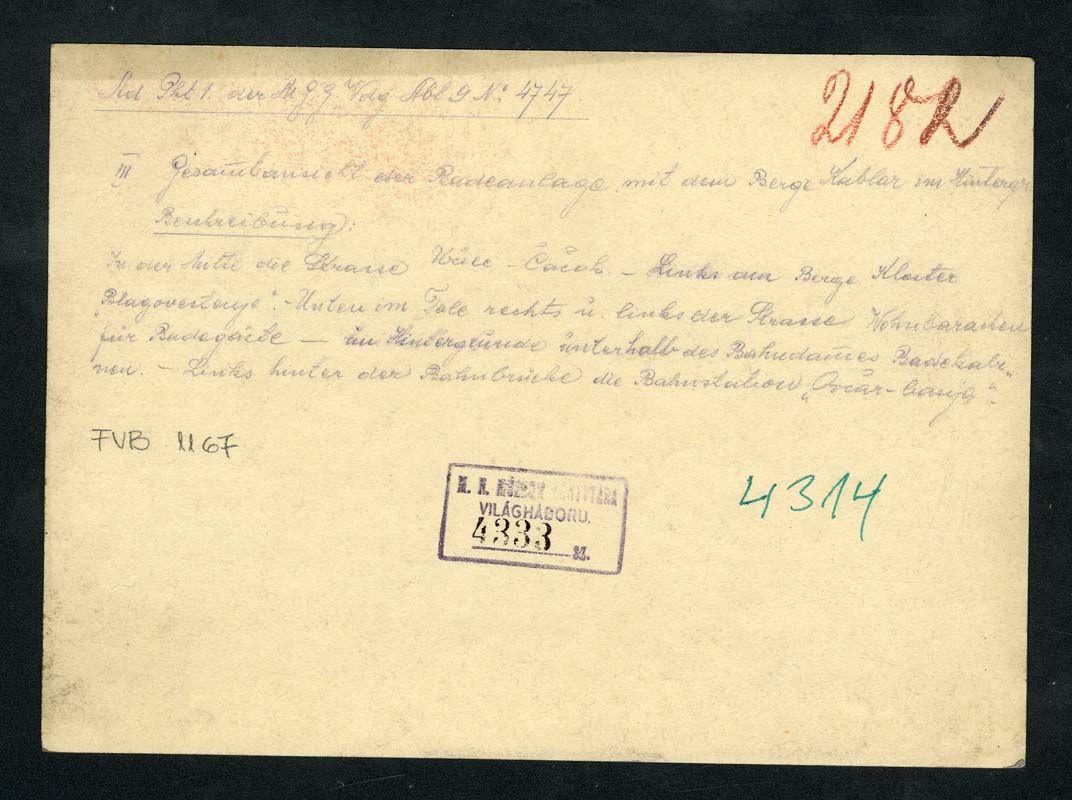 Ad Pkt 1. der M G G Vdg Abl 9 No 4747
2182
III Gesamtansicht der Badeanlage mit dem Berge Kablar im Hintergr
Beschreibung:
In der Mitte die Strasse Užice - Čačak. - Links am Berge Kloster
"Blagovestenje". - Unten im Tale rechts u. links der Strasse Wohnbaracken
für Badegäste - im Hintergrunde unterhalb des Bahndammes Badekabi„
nen. - Links hinter der Bahnbrücke die Bahnstation „Ovčar-banja".
FVB 1167
4314
M. N. MÚZEUM KÖNYVTÁRA
VILÁGHÁBORU.
4333 SZ.